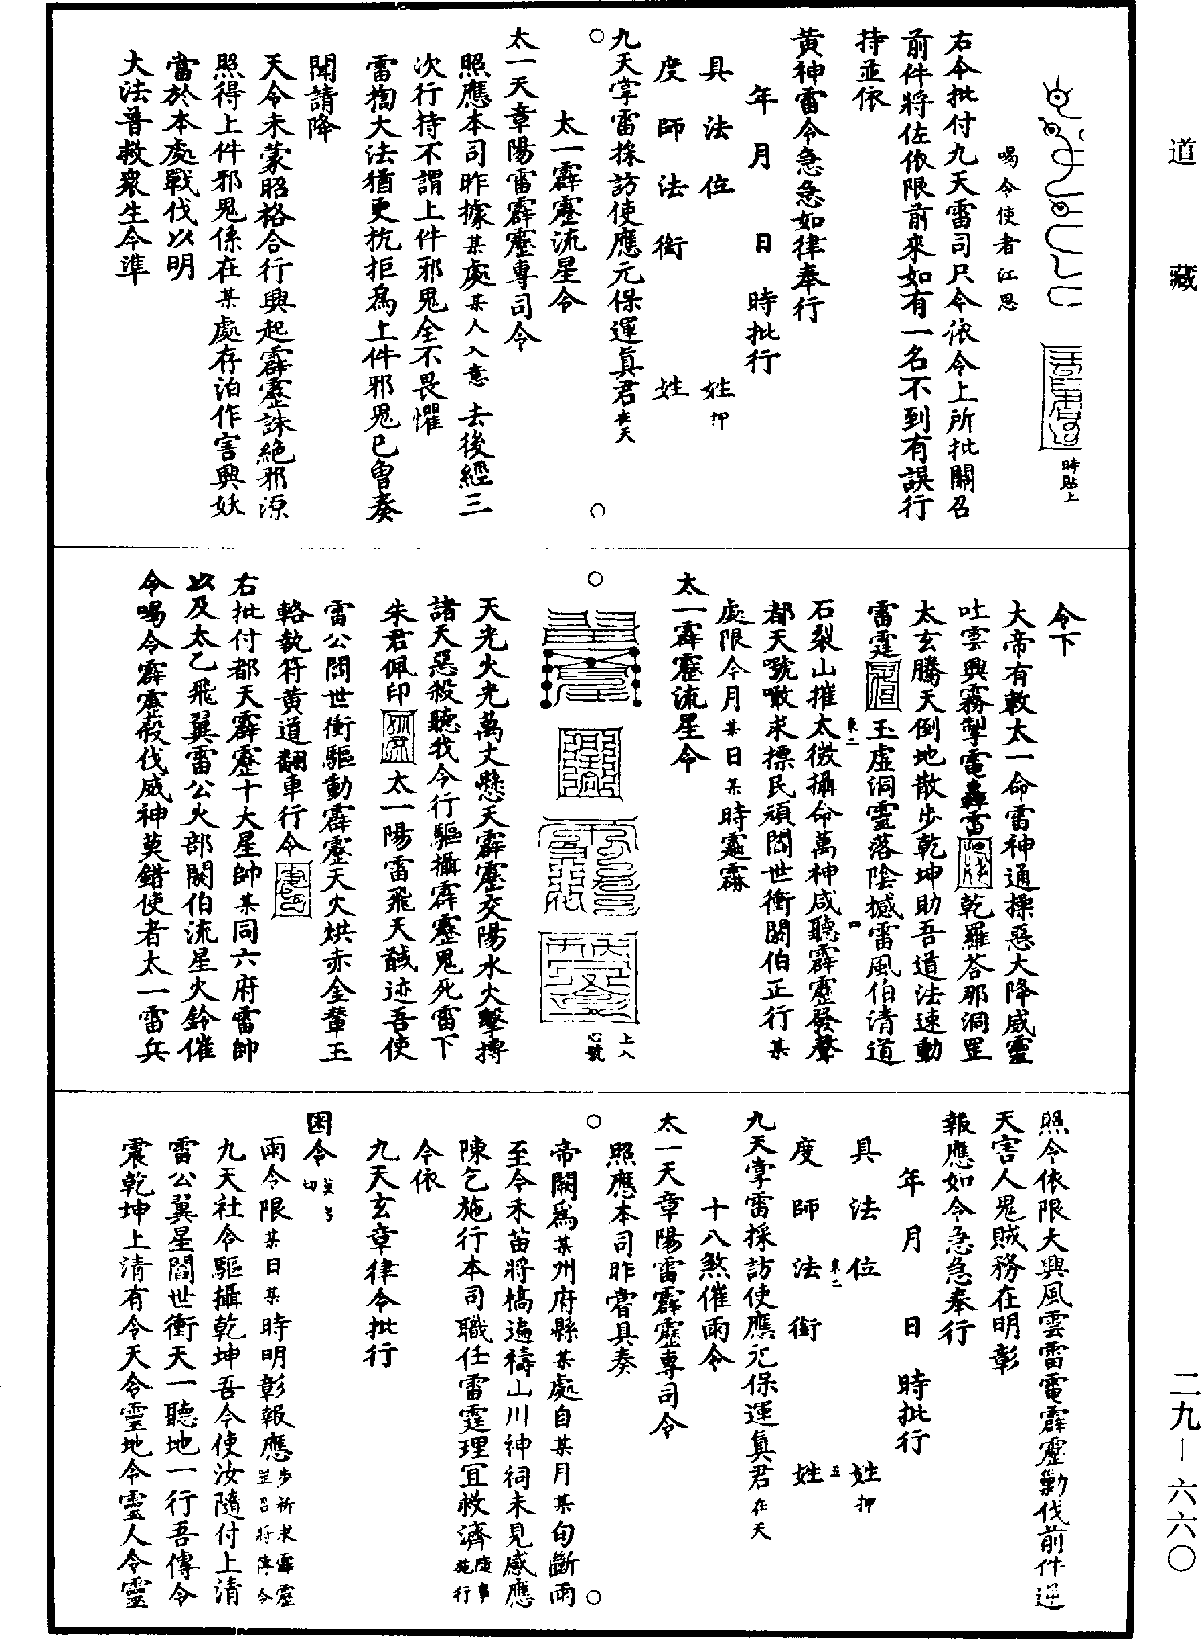 道藏
喝令使者江思
時貼上
右令批付九天雷司尺令依令上所批關召
前件將佐依限前來如有一名不到有誤行
持並依
黃神雷令急急如律奉行
年月　日　時批行
具法位　姓押
度師法銜　姓
九天掌雷採訪使應元保運真君在天
太一霹靂流星令
太一天章陽雷霹靂專司令
照應本司昨據某處某人入意去後經三
次行持不謂上件邪鬼全不畏懼
雷擒大法猶更抗拒為上件邪鬼已曾奏
聞請降
天令未蒙昭格合行興起霹靂誅絕邪源
照得上件邪鬼係在某處存泊作害興妖
當於本處戰伐以明
大法普救眾生令準
令下
大帝有敕太一命雷神通操惡大降威靈
吐雲興霧掣電轟雷乾羅荅那洞罡
太玄騰天倒地散步乾坤助吾道法速動
雷霆玉虛洞靈落陰撼雷風伯清道
石裂山摧太微攝命萬神咸聽霹靂發聲
都天號嗷求摽民頑閻世衝閼伯正行某
處限今月某日某時靈霖
太一霹靂流星令
上入
心號
天光火光萬丈懸天霹靂交陽水火擊摶
諸天惡殺聽我令行驅攝霹靂鬼死雷下
朱君佩印太一陽雷飛天馘迹吾使
雷公閻世衝驅動霹靂天火烘赤金輦玉
輅執符黃道翻車行令
右批付都天霹靂十大星帥某同六府雷帥
以及太乙飛翼雷公火部閼伯流星火鈴催
令喝令霹靂殺伐威神莫錯使者太一雷兵
照令依限大興風雲雷電霹靂勦伐前件逆
天害人鬼賊務在明彰
報應如令急急奉行
年月　日　時批行
具法位　姓押
度師法銜　姓
九天掌雷採訪使應元保運真君在天
十八煞催雨令
太一天章陽雷霹靂專司令
照應本司昨嘗具奏
帝闕為某州府縣某處自某月某旬斷雨
至今禾苗將槁遍禱山川神祠未見感應
陳乞施行本司職任雷霆理宜救濟度事施行
令依
九天玄章律令批行
困令
雨令限某日某時明彰報應步祈求霹靂並召將傳令
九天社令驅攝乾坤吾令使汝隨付上清
雷公翼星閻世衝天一聽地一行吾傳令
震乾坤上清有令天令靈地令靈人令靈
二九—六六〇